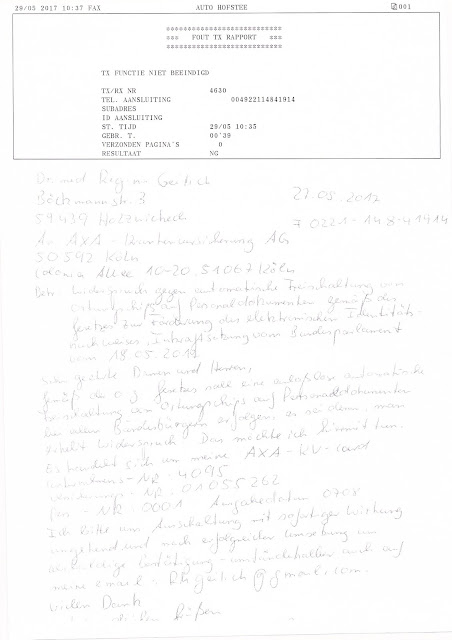 29/05 2017 10:37 FAX AUTO HOFSTEE 001
****************************
*** FOUT TX RAPPORT ***
****************************
TX FUNCTIE NIET BEEINDIGD
TX/RX NR 4630
TEL. AANSLUITING 004922114841914
SUBADRES
ID AANSLUITING
ST. TIJD 29/05 10:35
GEBR. T. 00'39
VERZONDEN PAGINA'S 0
RESULTAAT NG
Dr. med.
Böckmannstr. 3 27.05.2017
59439 Holzwickede F 0221-148-41914
An AXA - Krankenversicherung AG
50592 Köln
Colonia Allee 10-20, 51067 Köln
Betr. Widerspruch gegen automatische Freischaltung von
Ortungschip auf Personaldokumenten gemäß des
Gesetzes zur Förderung des elektronischen Identitäts-
nachweises, Inkraftsetzung vom Bundesparlament
vom 18.05.2017
Sehr geehrte Damen und Herren,
gemäß des o.g. Gesetzes soll eine automatische
Freischaltung von Ortungschips auf Personaldokumenten
bei allen Bundesbürgern erfolgen, es sei denn, man
erhebt Widerspruch. Das möchte ich hiermit tun.
Es handelt sich um meine AXA-KV-Card
Unternehmens-NR. 4095
Versicherungs-NR. 01055262
Pers-NR. 0001 Ausgabedatum 0708
Ich bitte um Ausschaltung mit sofortiger Wirkung
umgehend und nach erfolgreicher Umsetzung um
Bestätigung - auch auf
meine email: @gmail.com.
Vielen Dank